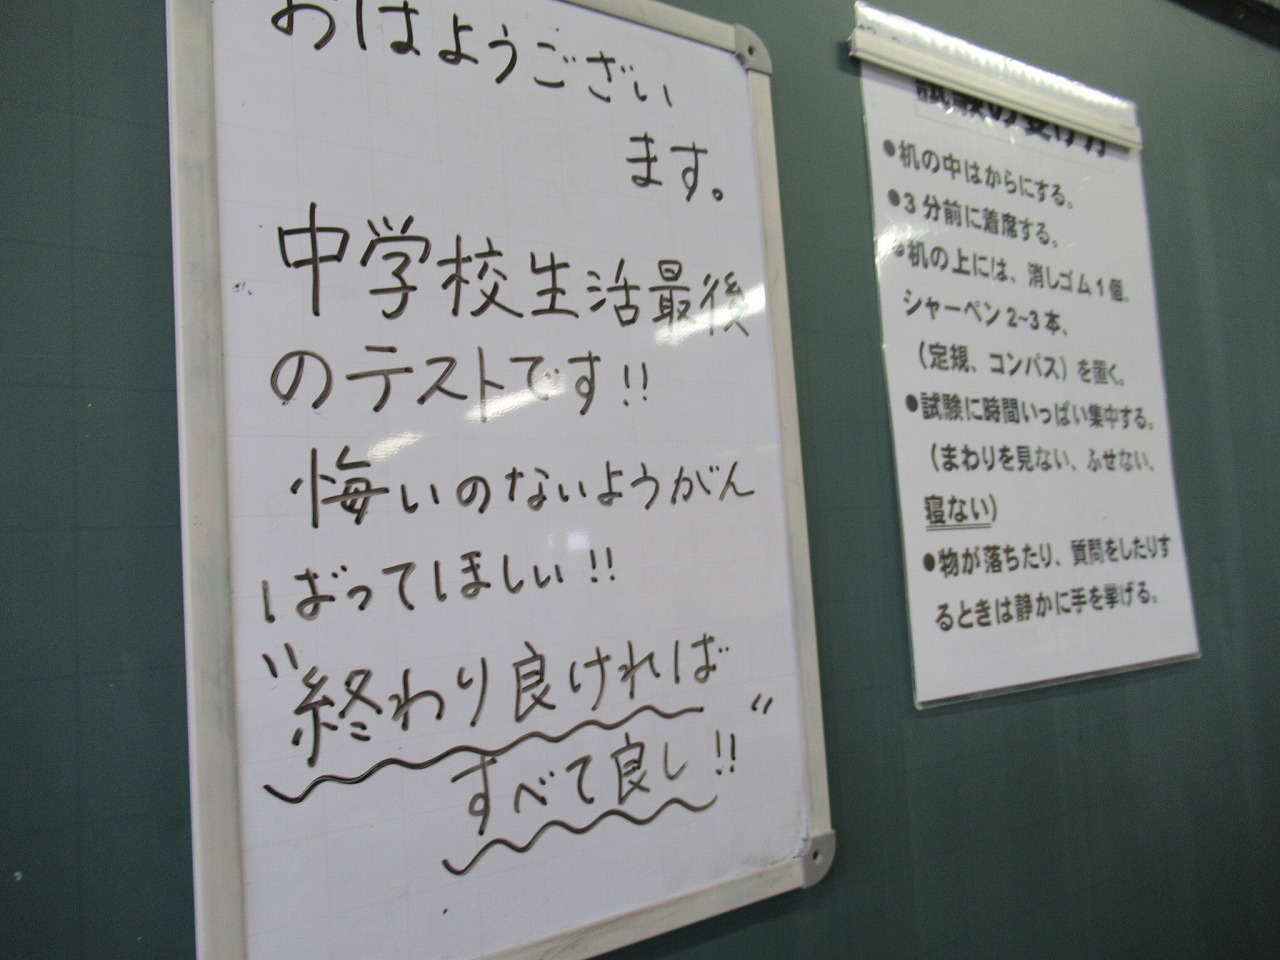 おはようござい
ます。
中学校生活最後
のテストです!!
悔いのないようがん
ばってほしい!!
"終わり良ければ
すべて良し!!"
試験の受け方
●机の中はからにする。
●3分前に着席する。
●机の上には、消しゴム1個、
シャーペン2~3本、
(定規、コンパス)を置く。
●試験に時間いっぱい集中する。
(まわりを見ない、ふせない、
寝ない)
●物が落ちたり、質問をしたりす
るときは静かに手を挙げる。